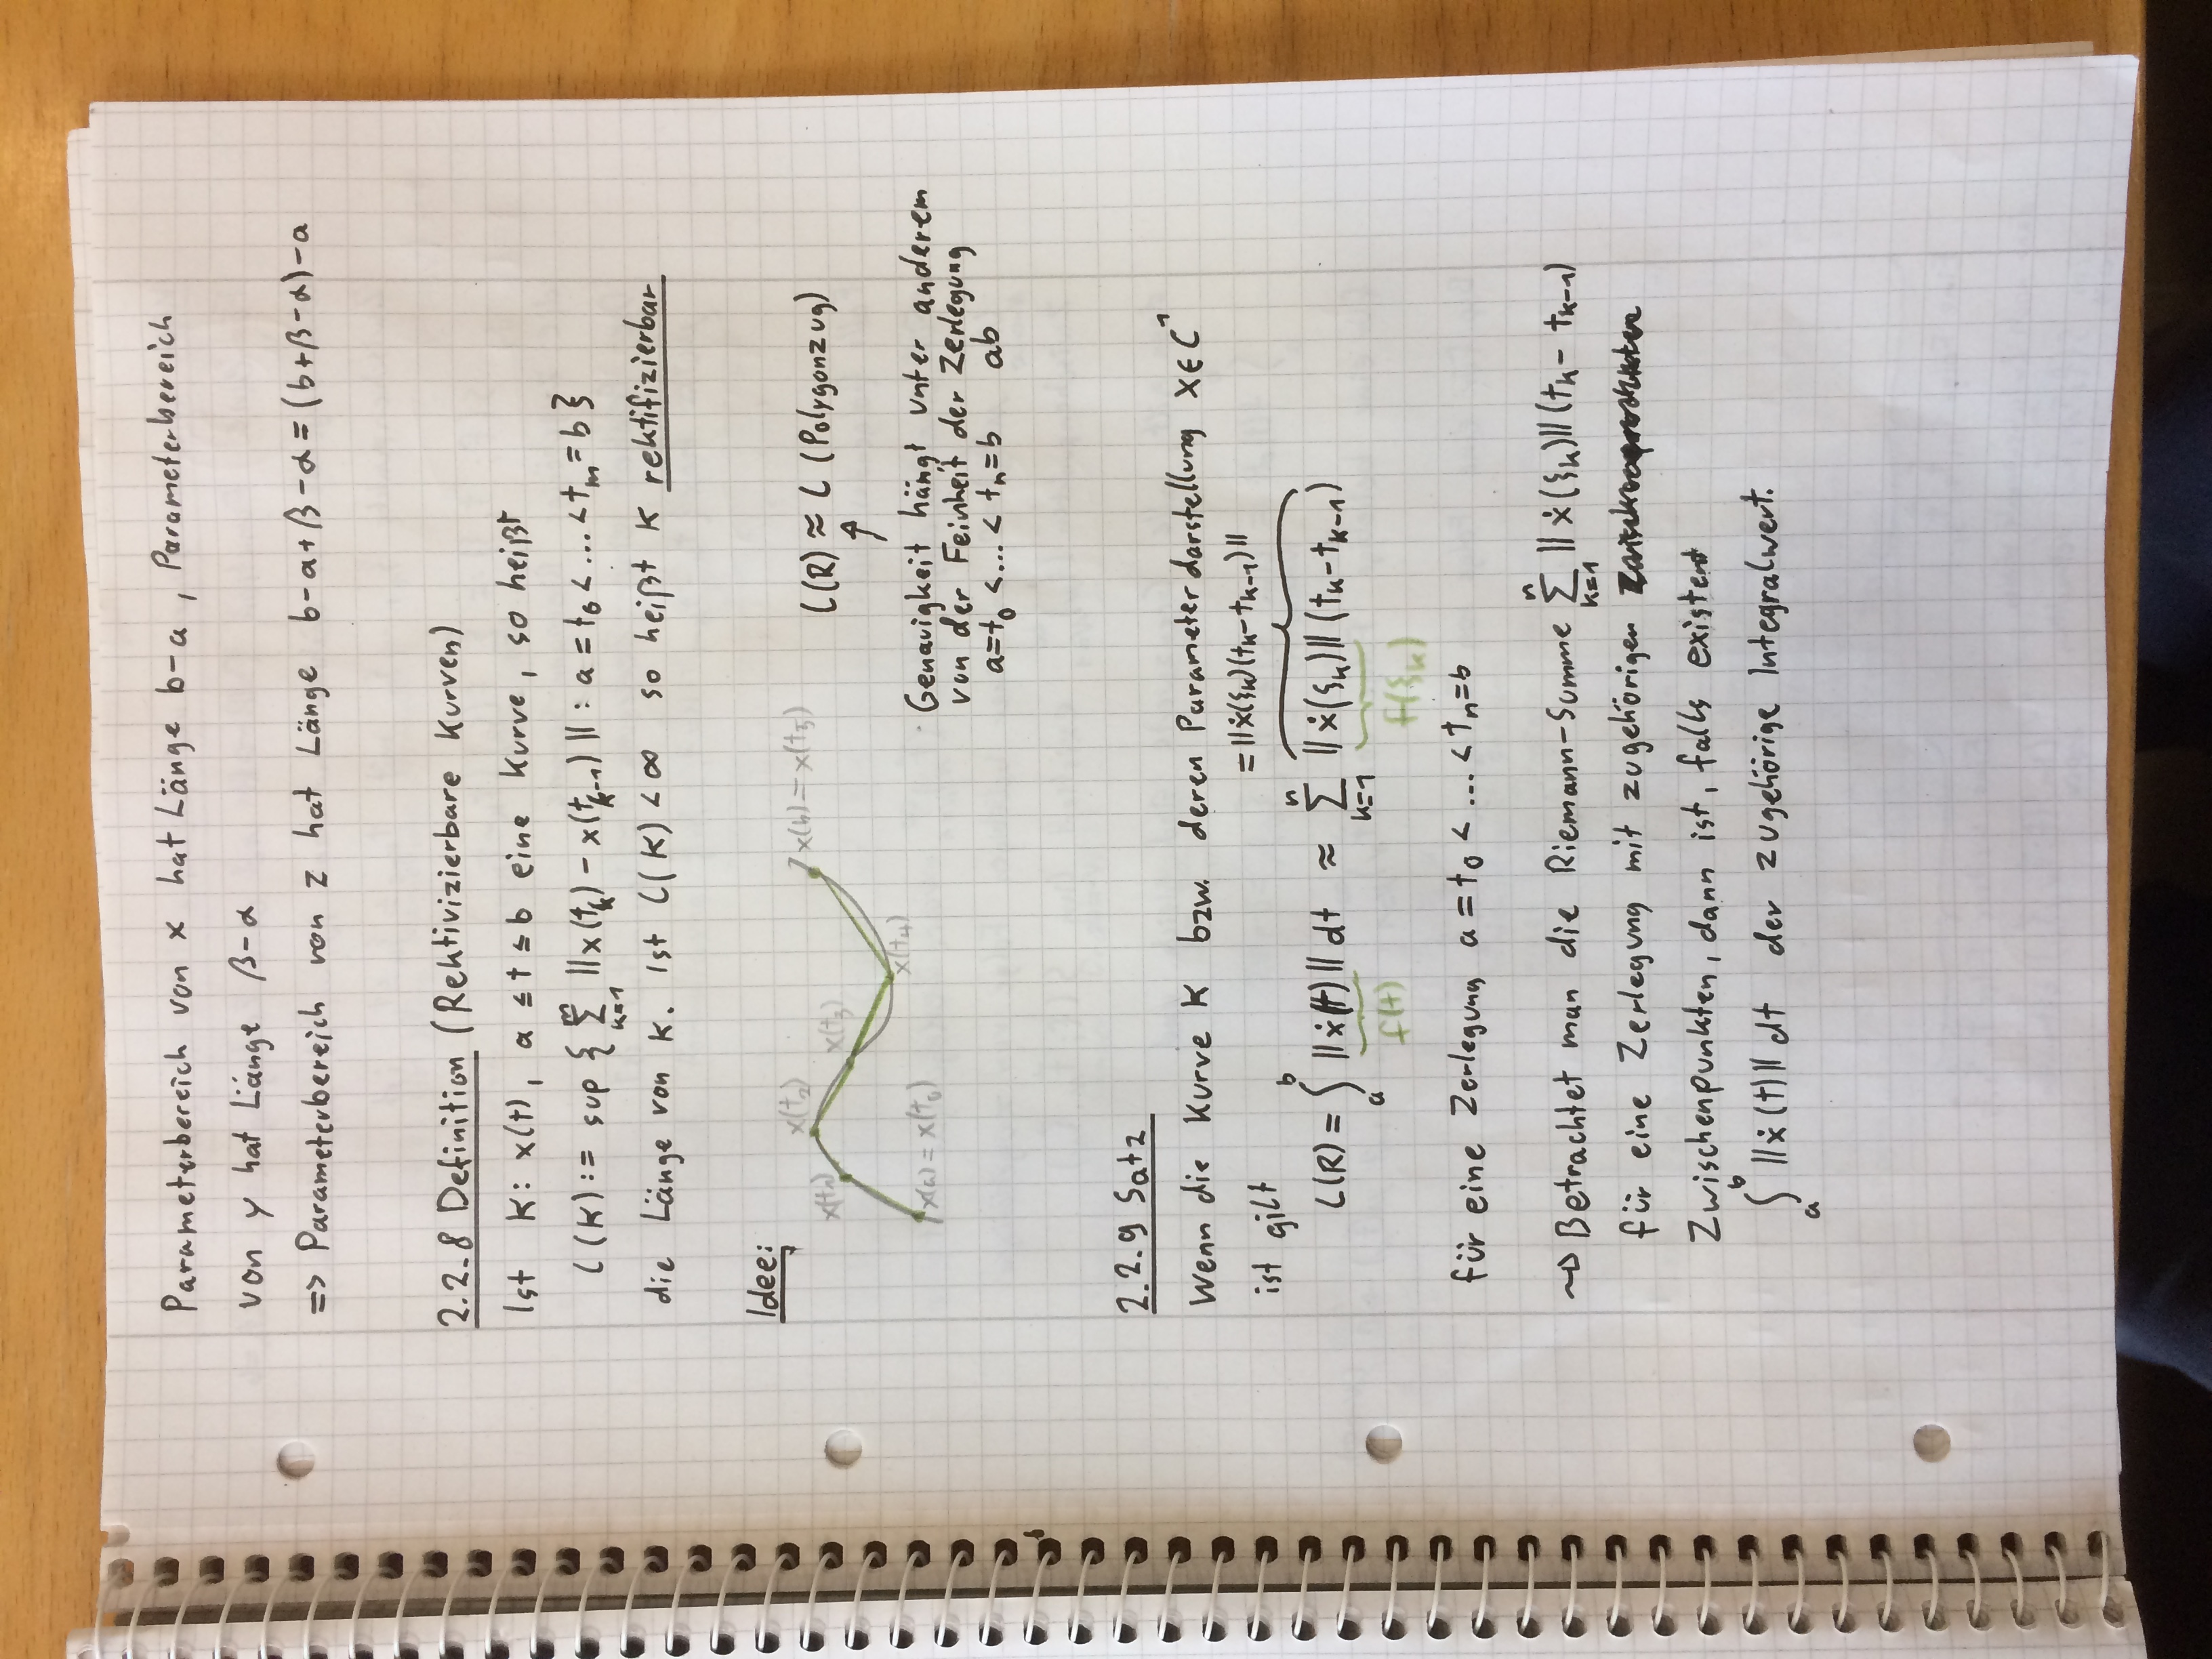 Parameterbereich von x hat Länge b-a , Parameterbereich
von y hat Länge β-α
=> Parameterbereich von z hat Länge b-a+β-α=(b+β-α)-a
2.2.8 Definition (Rektivizierbare Kurven)
Ist K: x(t), a ≤ t ≤ b eine Kurve, so heißt
L(K):= sup { ∑_{k=1}^{m} ||x(t_k) - x(t_{k-1})|| : a = t_0 < ... < t_m = b }
die Länge von K. Ist L(K) < ∞ so heißt K rektifizierbar
Idee:
x(t_2)
x(b) = x(t_5)
x(t_1)
x(t_3)
x(t_4)
x(a) = x(t_0)
L(R) ≈ L (Polygonzug)
↑
Genauigkeit hängt unter anderem
von der Feinheit der Zerlegung
a=t_0 <...< t_n=b ab
2.2.9 Satz
Wenn die Kurve K bzw. deren Parameterdarstellung X∈C^1
=||ẋ(ξ_k)(t_k-t_{k-1})||
ist gilt
L(R) = ∫_a^b ||ẋ(t)|| dt ≈ ∑_{k=1}^{n} ||ẋ(ξ_k)|| (t_k-t_{k-1})
f(t) f(ξ_k)
für eine Zerlegung a = t_0 < ... < t_n=b
~> Betrachtet man die Riemann-Summe ∑_{k=1}^{n} ||ẋ(ξ_k)|| (t_k - t_{k-1})
für eine Zerlegung mit zugehörigen
Zwischenpunkten, dann ist, falls existent
∫_a^b ||ẋ(t)|| dt der zugehörige Integralwert.